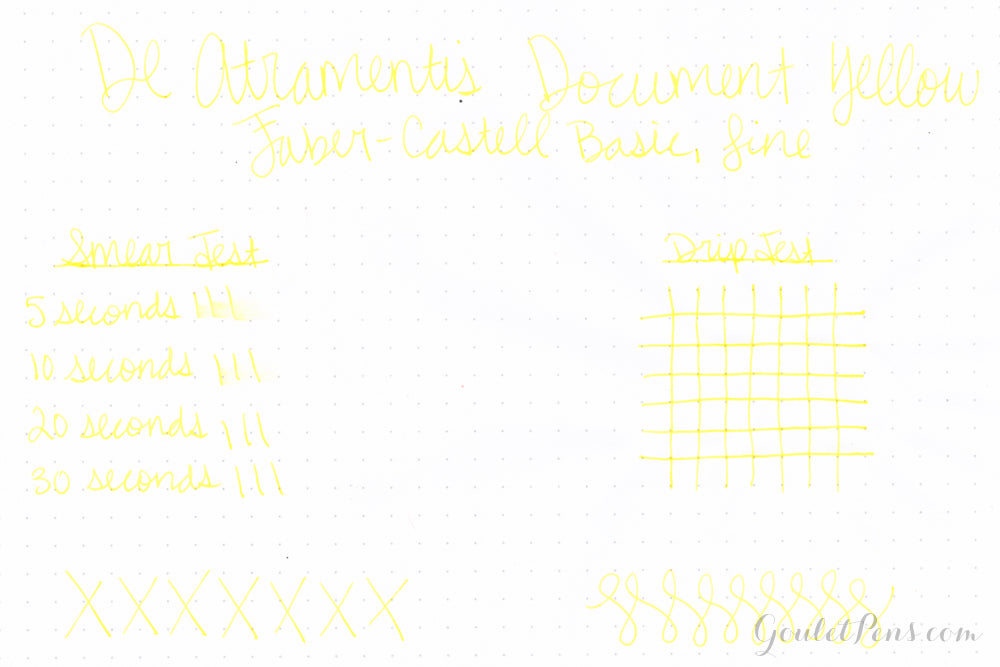 De Atramentis Document Yellow
Faber-Castell Basic, fine
Smear Test
Drip Test
5 seconds
10 seconds
20 seconds
30 seconds
XXXXXXX
GouletPens.com